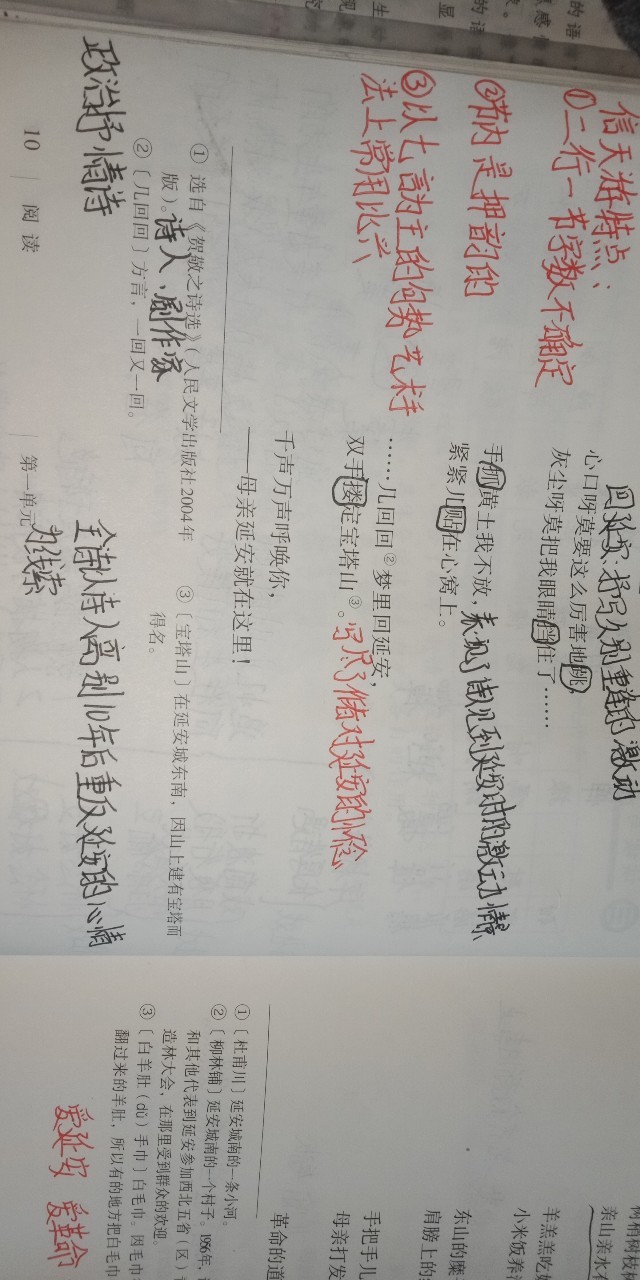 回延安：抒写久别重逢的激动
信天游特点：
①二行一节字数不确定
②节内是押韵的
③以七言为主的句势艺术手
法上常用比兴
心口呀莫要这么厉害地跳，
灰尘呀莫把我眼睛挡住了……
手抓黄土我不放，
紧紧儿贴在心窝上。
……几回回②梦里回延安，
双手搂定宝塔山③。
千声万声呼唤你，
——母亲延安就在这里！
① 选自《贺敬之诗选》（人民文学出版社2004年
版）。诗人、剧作家
② 〔几回回〕方言，一回又一回。
③ 〔宝塔山〕在延安城东南，因山上建有宝塔而
得名。
政治抒情诗
全诗以诗人离别10年后重反延安的心情
为线索
10 阅读 第一单元
亲山亲水
羊羔羔吃
小米饭养
东山的糜
肩膀上的
手把手儿
母亲打发
革命的道
① 〔杜甫川〕延安城南的一条小河。
② 〔柳林铺〕延安城南的一个村子。1956年，
和其他代表到延安参加西北五省（区）
造林大会，在那里受到群众的欢迎。
③ 〔白羊肚（dǔ）手巾〕白毛巾。因毛巾
翻过来的羊肚，所以有的地方把白毛巾
爱延安 爱革命